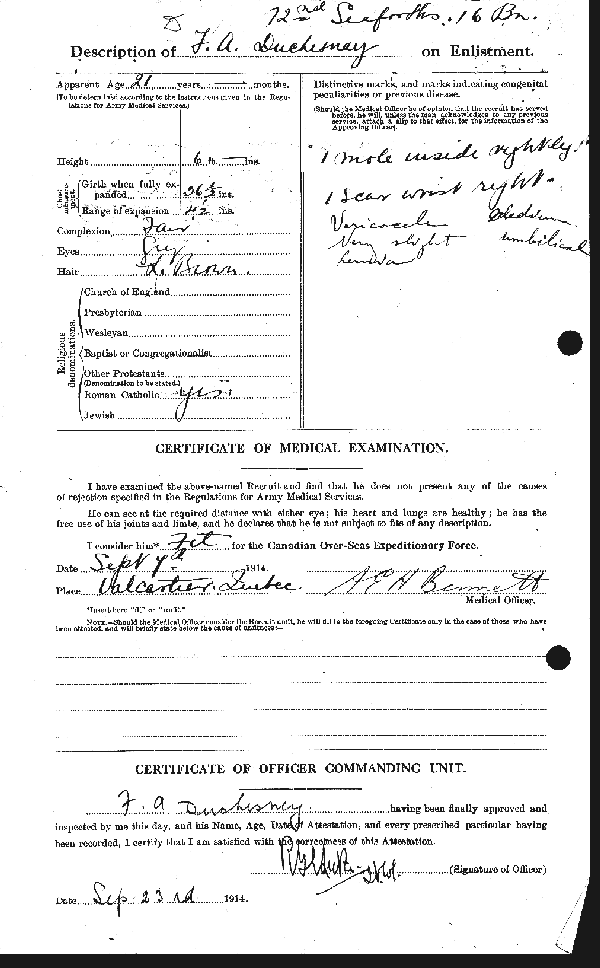 72nd Seaforths. 16 Bn.
Description of F. A. Duchesney on Enlistment.
Apparent Age 21 years months.
(To be determined according to the instructions given in the Regulations for Army Medical Services.)
Height 6 ft. — ins.
Chest measurement. Girth when fully expanded 36½ ins.
Range of expansion 4½ ins.
Complexion Fair
Eyes Grey
Hair L. Brown.
Religious denominations.
Church of England
Presbyterian
Wesleyan
Baptist or Congregationalist
Other Protestants
(Denomination to be stated.)
Roman Catholic yes.
Jewish
Distinctive marks, and marks indicating congenital
peculiarities or previous disease.
(Should the Medical Officer be of opinion that the recruit has served
before, he will, unless the man acknowledges to any previous
service, attach a slip to that effect, for the information of the
Approving Officer).
1 mole inside right
1 Scar wrist right.
Varicocele
Very slight umbilical
hernia
CERTIFICATE OF MEDICAL EXAMINATION.
I have examined the above-named Recruit and find that he does not present any of the causes
of rejection specified in the Regulations for Army Medical Services.
He can see at the required distance with either eye; his heart and lungs are healthy; he has the
free use of his joints and limbs, and he declares that he is not subject to fits of any description.
I consider him* Fit for the Canadian Over-Seas Expeditionary Force.
Date Sept 7th 1914.
Place Valcartier, Quebec. Bennett
Medical Officer.
*Insert here "fit" or "unfit."
NOTE.—Should the Medical Officer consider the Recruit unfit, he will fill in the foregoing Certificate only in the case of those who have
been attested, and will briefly state below the cause of unfitness:—
CERTIFICATE OF OFFICER COMMANDING UNIT.
F. A Duchesney having been finally approved and
inspected by me this day, and his Name, Age, Date of Attestation, and every prescribed particular having
been recorded, I certify that I am satisfied with the correctness of this Attestation.
(Signature of Officer)
Date Sep 23rd 1914.